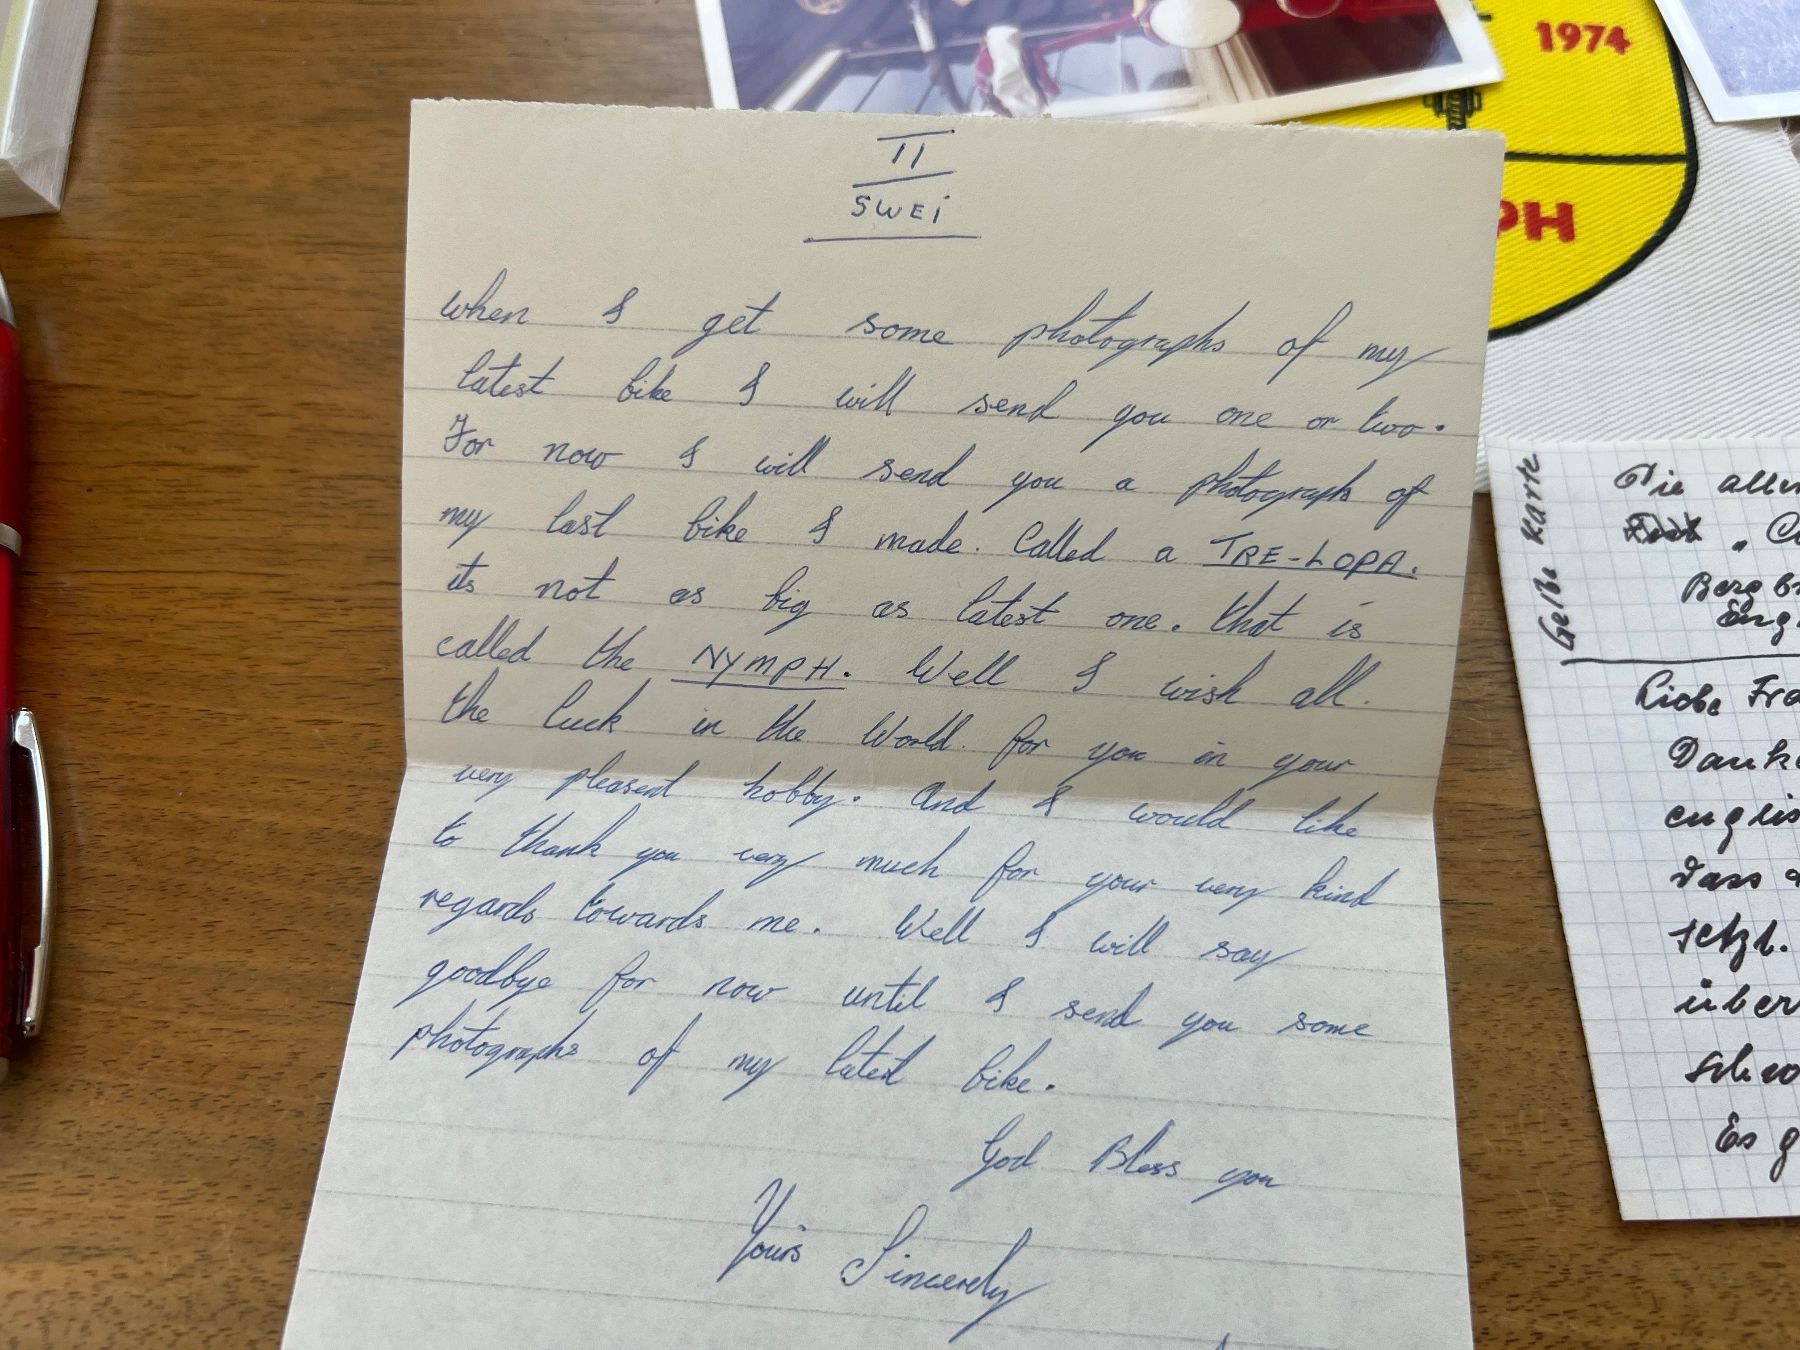 1974
PH
II
SWEi
when I get some photographs of my
latest bike I will send you one or two.
For now I will send you a photograph of
my last bike I made. Called a TRE-LOPA.
its not as big as latest one. that is
called the NYMPH. Well I wish all.
the luck in the World. for you in your
very pleasent hobby. And I would like
to thank you very much for your very kind
regards towards me. Well I will say
goodbye for now until I send you some
photographs of my latest bike.
God Bless you
Yours Sincerely
Gelbe Karte
Die
Liebe
Dank
englis
Dass
setzt.
über
Es g